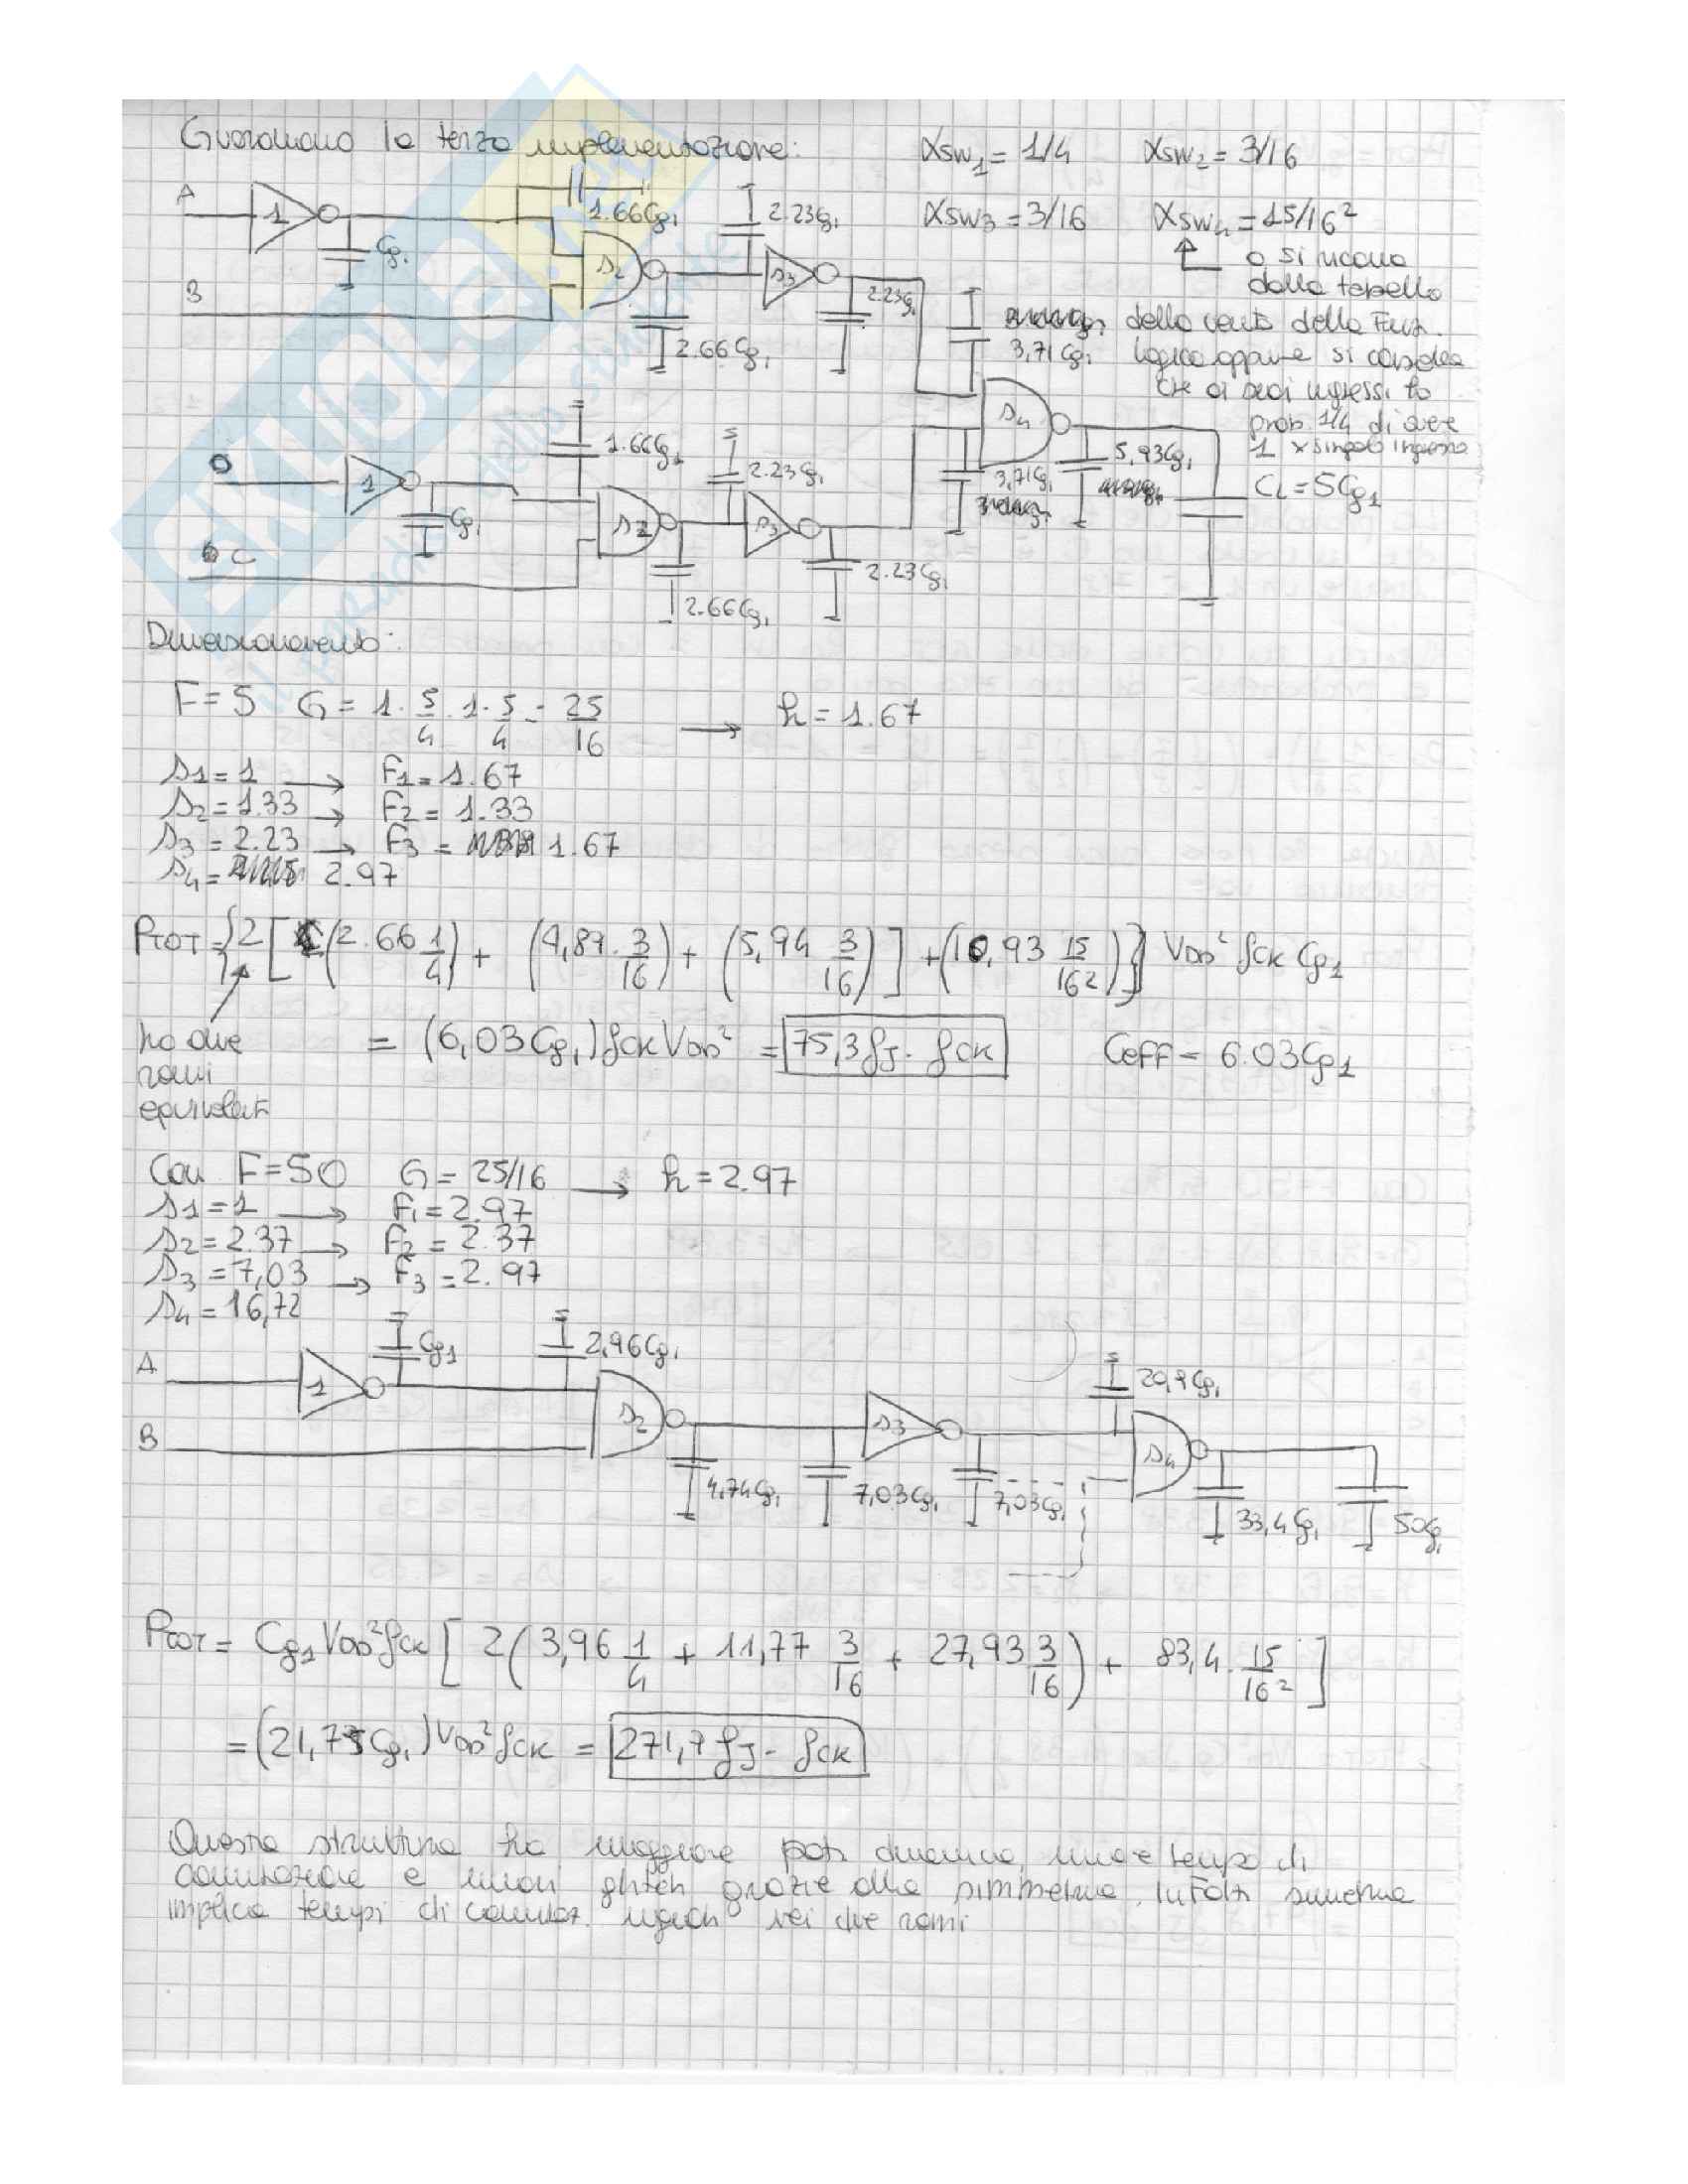 Guardiamo la terza implementazione:
αsw₁ = 1/4 αsw₂ = 3/16
αsw₃ = 3/16 αsw₄ = 15/16²
o si ricava
dalla tabella
della verità della Funz.
logica oppure si considera
che ai suoi ingressi ho
prob. 1/4 di avere
1 x singolo ingresso
CL = 5Cg1
A
1
Cg1
1.66Cg1
B
S2
2.66Cg1
2.23Cg1
S3
2.23Cg1
3,71Cg1
S4
3,71Cg1
5,93Cg1
D
1
Cg1
1.66Cg1
C
S2
2.66Cg1
2.23Cg1
S3
2.23Cg1
Dimensionamento:
F = 5 G = 1 · 5/4 · 1 · 5/4 = 25/16 → h = 1.67
S1 = 1 → F1 = 1.67
S2 = 1.33 → F2 = 1.33
S3 = 2.23 → F3 = 1.67
S4 = 2.97
PTOT = {2 [(2.66 1/4) + (4,89 · 3/16) + (5,94 3/16)] + (10,93 15/16²)} VDD² fCK Cg1
ho due
rami
equivalenti
= (6,03Cg1) fCK VDD² = 75,3 fJ · fCK Ceff = 6.03Cg1
Con F = 50 G = 25/16 → h = 2.97
S1 = 1 → F1 = 2.97
S2 = 2.37 → F2 = 2.37
S3 = 7,03 → F3 = 2.97
S4 = 16,72
A
1
Cg1
2,96Cg1
B
S2
4,74Cg1
7,03Cg1
S3
7,03Cg1
20,9Cg1
S4
33,4Cg1
50Cg1
PTOT = Cg1 VDD² fCK [2(3,96 1/4 + 11,77 3/16 + 27,93 3/16) + 83,4 · 15/16²]
= (21,75Cg1) VDD² fCK = 271,9 fJ · fCK
Questa struttura ha maggiore pot. dinamica, minore tempo di
commutazione e minori glitch grazie alla simmetria. Infatti simmetria
implica tempi di commutaz. uguali nei due rami